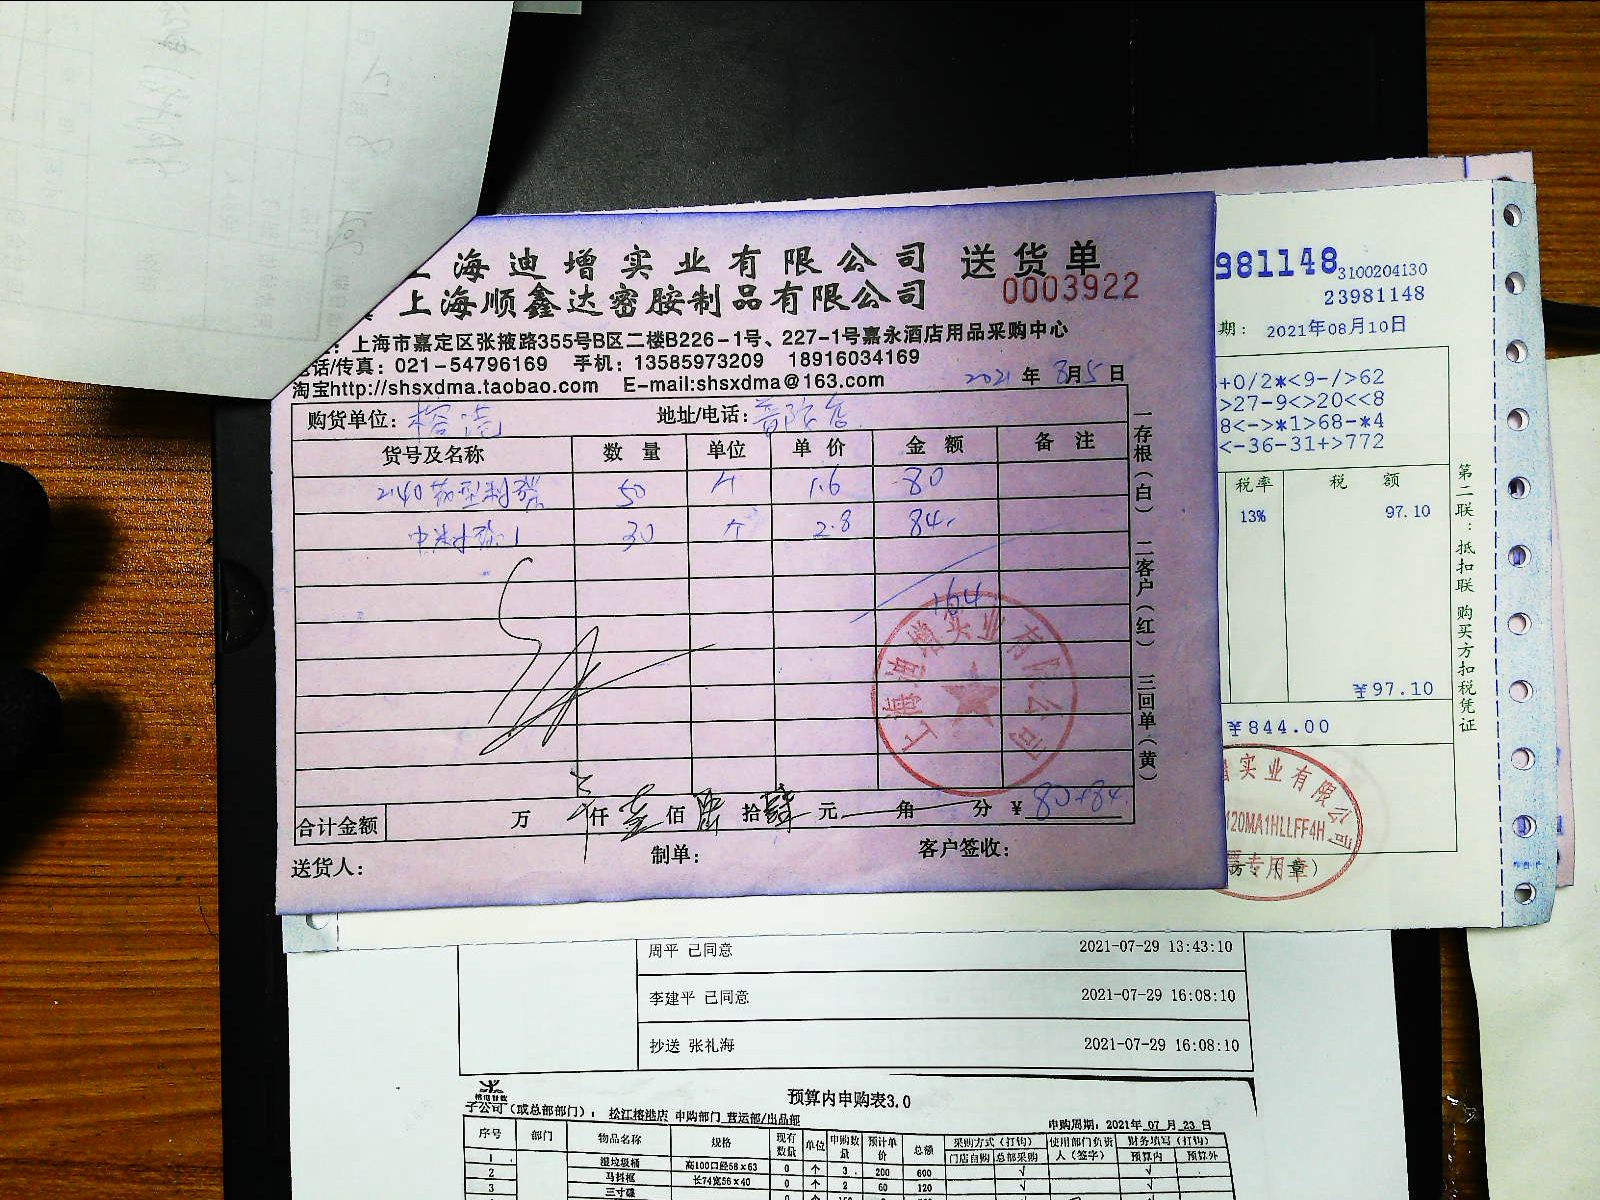 上海迪增实业有限公司 送货单
上海顺鑫达密胺制品有限公司 0003922
：上海市嘉定区张掖路355号B区二楼B226-1号、227-1号嘉永酒店用品采购中心
电话/传真：021-54796169 手机：13585973209 18916034169
淘宝http://shsxdma.taobao.com E-mail:shsxdma@163.com 2021年8月5日
购货单位：榕港 地址/电话：普陀店
货号及名称 数量 单位 单价 金额 备注
2140 50 个 1.6 80
30 个 2.8 84.
164
上海迪增实业有限公司
合计金额 万 仟壹佰陆拾肆元 角 分 ¥80+84.
送货人： 制单： 客户签收：
一存根（白） 二客户（红） 三回单（黄）
981148 3100204130
23981148
期： 2021年08月10日
+0/2*<9-/>62
>27-9<>20<<8
8<->*1>68-*4
<-36-31+>772
税率 税额
13% 97.10
¥97.10
¥844.00
第二联：抵扣联 购买方扣税凭证
增实业有限公司
120MA1HLLFF4H
票专用章
周平 已同意 2021-07-29 13:43:10
李建平 已同意 2021-07-29 16:08:10
抄送 张礼海 2021-07-29 16:08:10
预算内申购表3.0
子公司（或总部部门）： 松江榕港店 申购部门 营运部/出品部 申购周期：2021年 07 月 23 日
序号 部门 物品名称 规格 现有数量 单位 申购数量 预计单价 总额 采购方式（打钩） 使用部门负责人（签字） 财务填写（打钩）
门店自购 总部采购 预算内 预算外
1 湿垃圾桶 高100口径58x63 0 个 3 200 600 √ √
2 马抖框 长74宽56x40 0 个 2 60 120 √ √
3 三寸碟 0 个